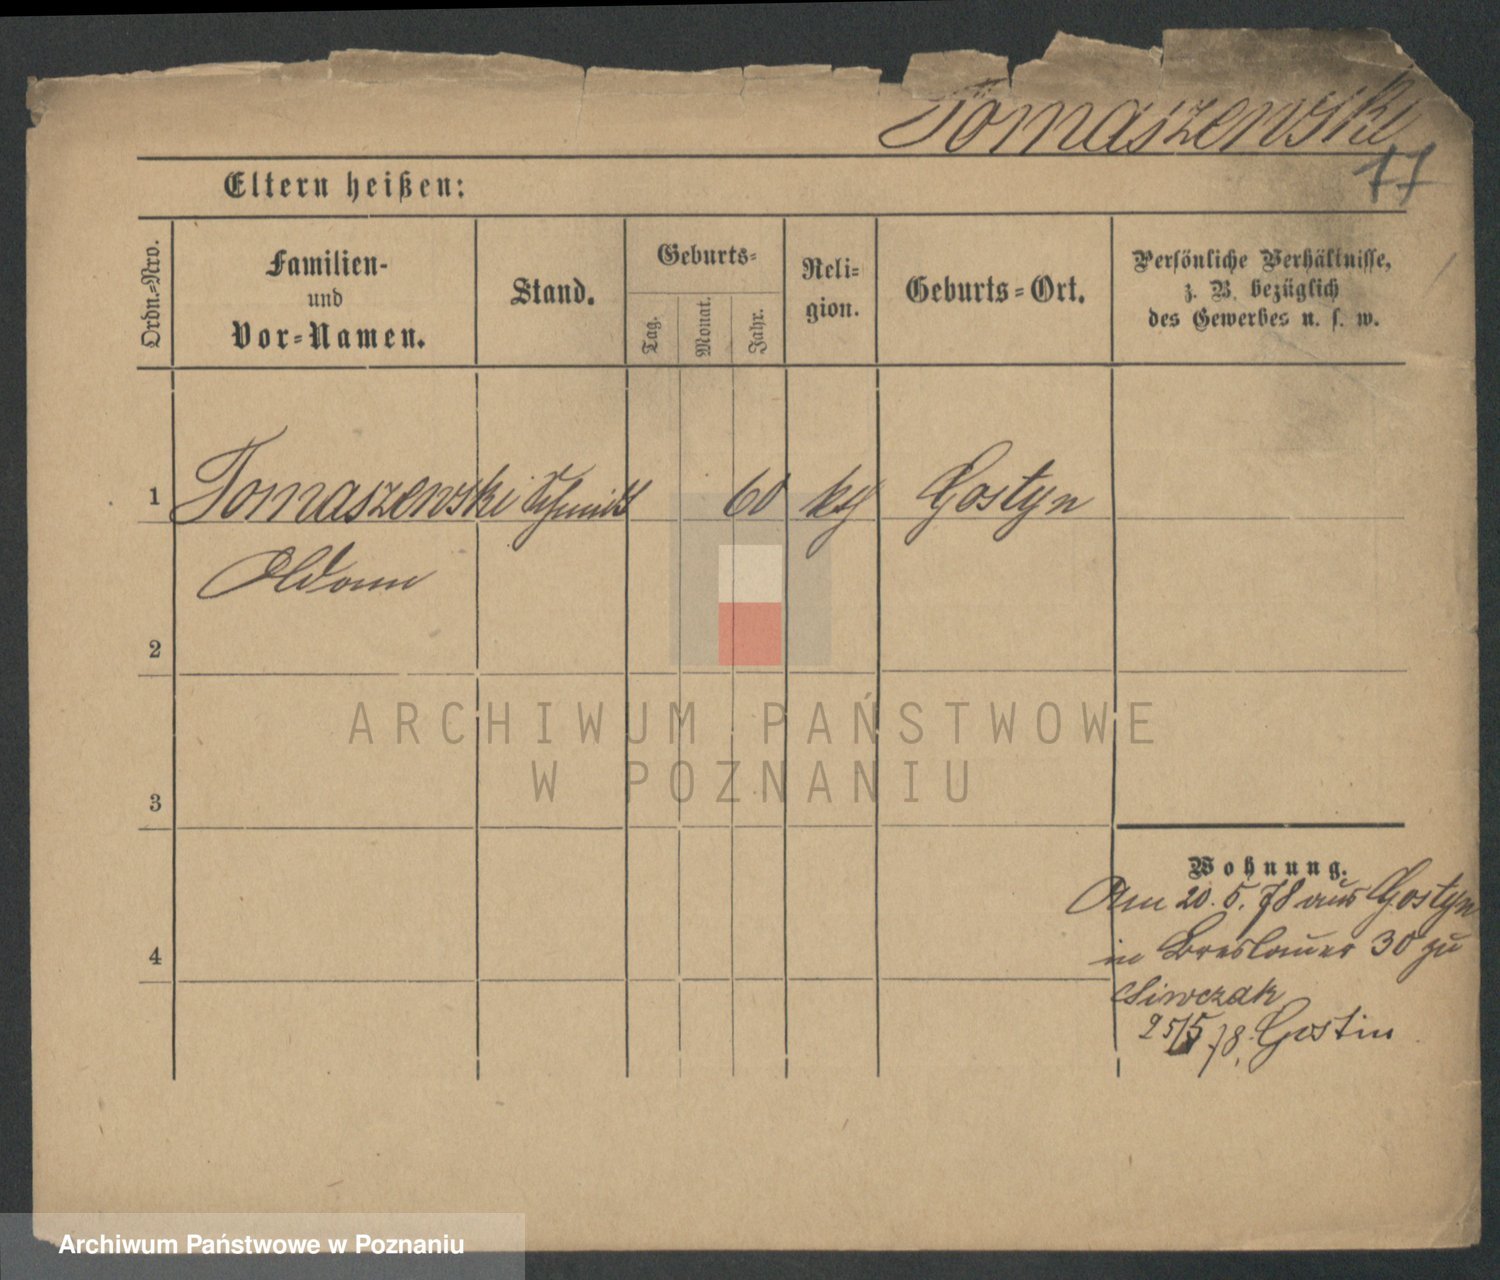 Tomaszewski
77
Eltern heißen:
Ordn.-Nro.
Familien-
und
Vor-Namen.
Stand.
Geburts-
Tag.
Monat.
Jahr.
Reli-
gion.
Geburts-Ort.
Persönliche Verhältnisse,
z. B. bezüglich
des Gewerbes u. s. w.
1 Tomaszewski Schmidt 60 kth Gostyn
Adam
2
ARCHIWUM PAŃSTWOWE
W POZNANIU
3
Wohnung.
Am 20. 5. 78 aus Gostyn
4
in Breslauer 30 zu
Siwczak
25/5 78. Gostin
Archiwum Państwowe w Poznaniu